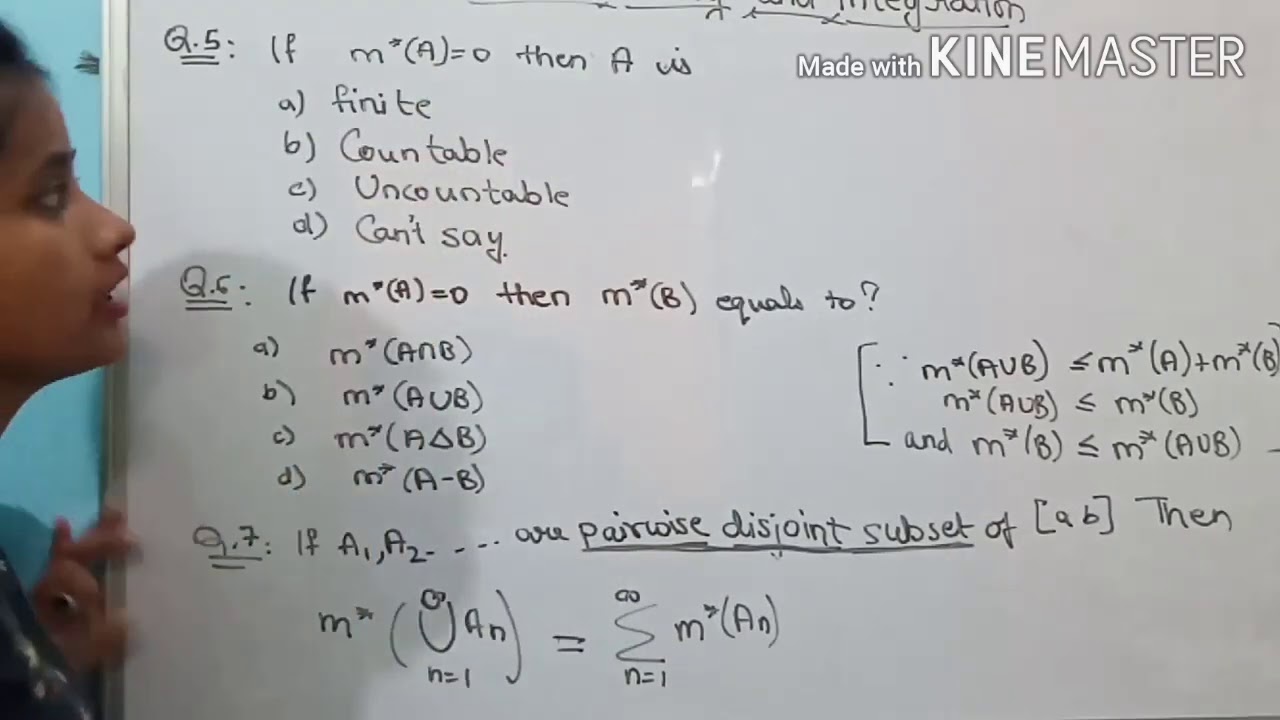 and Integration
Made with KINEMASTER
Q.5: If m*(A)=0 then A is
a) finite
b) Countable
c) Uncountable
d) Can't say.
Q.6: If m*(A)=0 then m*(B) equals to?
a) m*(A∩B)
b) m*(A∪B)
c) m*(A∆B)
d) m*(A-B)
[∵ m*(A∪B) ≤ m*(A)+m*(B)
m*(A∪B) ≤ m*(B)
and m*(B) ≤ m*(A∪B)
Q.7: If A₁, A₂ - .... are pairwise disjoint subset of [a b] Then
m* (∞⋃n=1 An) = ∞∑n=1 m*(An)